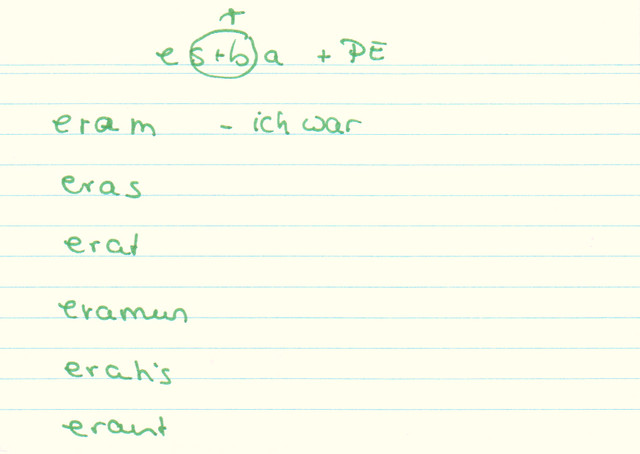 r
e s+b a + PE
eram - ich war
eras
erat
eramus
eratis
erant